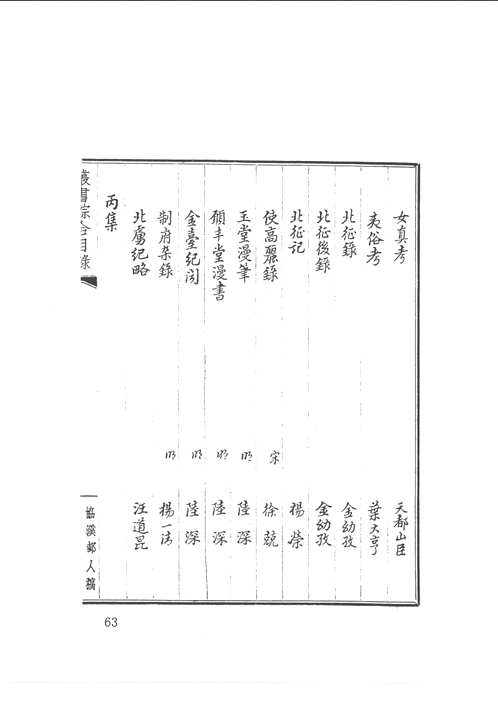 女真考 天都山臣
夷俗考 葉大亨
北征錄 金幼孜
北征後錄 金幼孜
北征記 楊榮
使高麗錄 宋 徐兢
玉堂漫筆 明 陸深
願丰堂漫書 明 陸深
金臺紀聞 明 陸深
制府杂錄 明 楊一清
北虜紀略 汪道昆
丙集
叢書綜合目錄
協溪鄉人撰
63